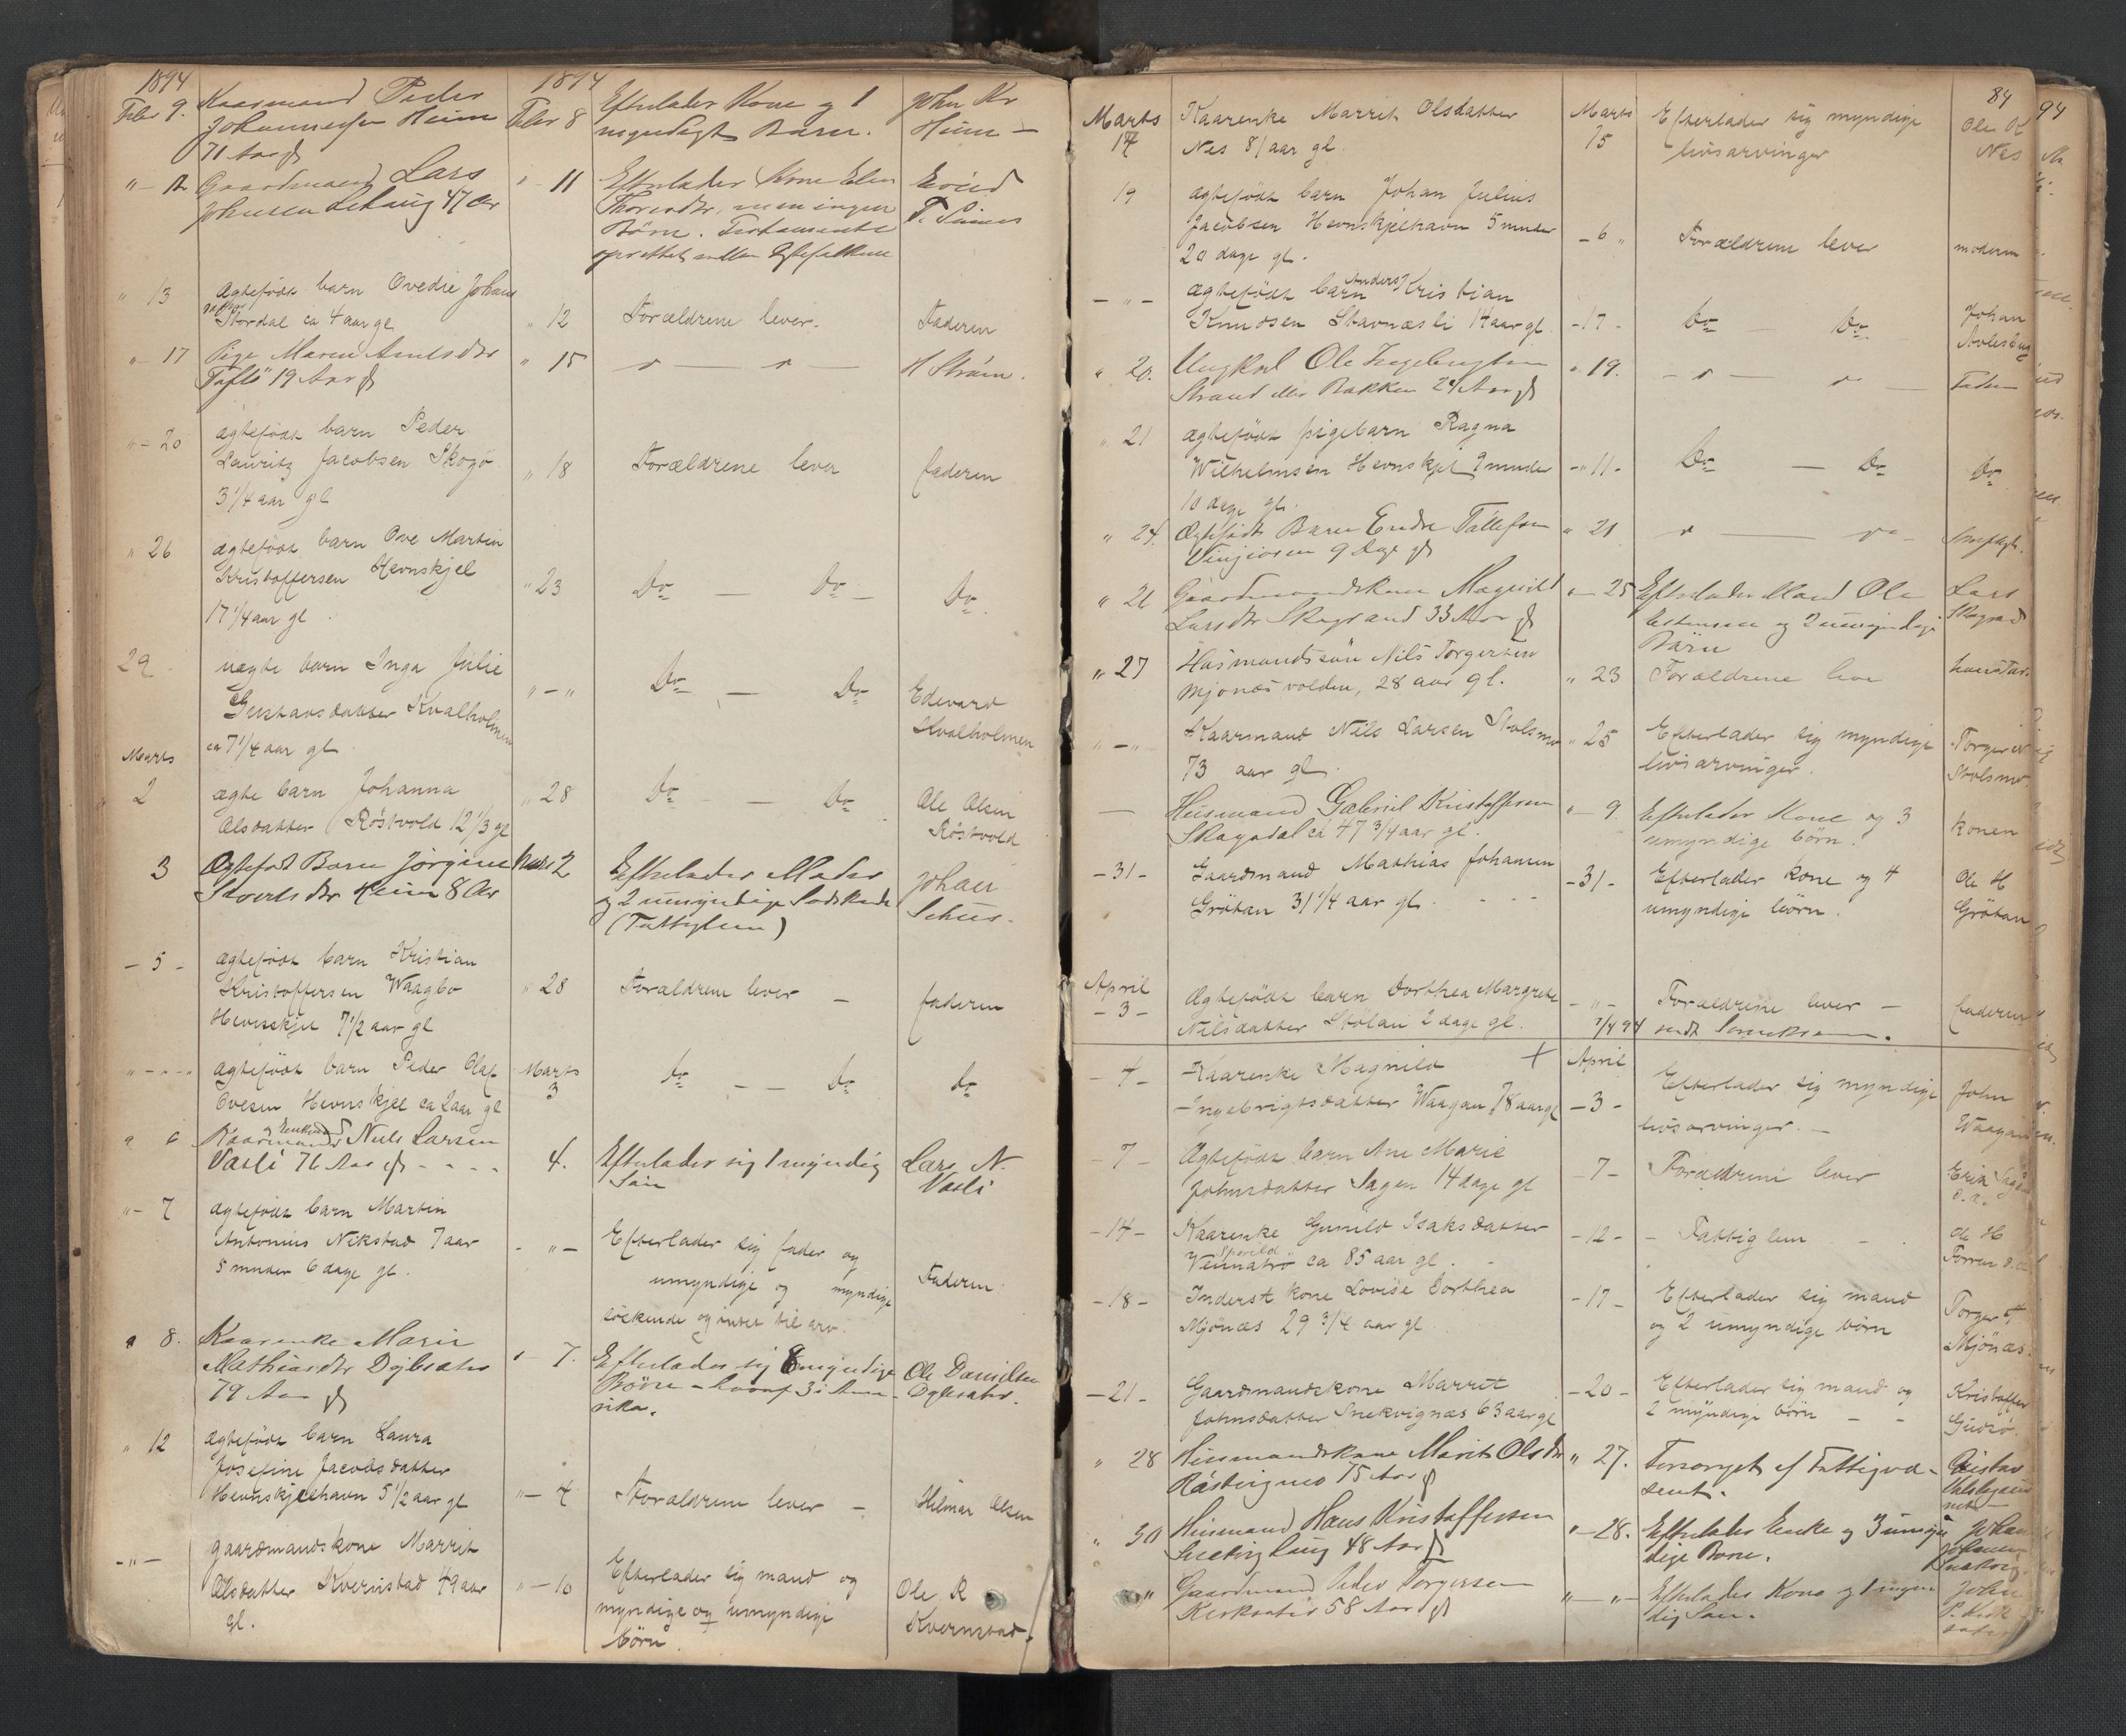 1894
1894
Febr 9.
Kaarmand Peder
Johannesen Heim
71 Aar gl
Febr 8
Efterlader Kone og 1
myndigt Barn.
John Kr
Heim
" - 12
Gaardmand Lars
Johnsen Lehaug 47 Aar
" - 11
Efterlader Kone Elen
men ingen
Børn. Testamente
oprettet mellem Ægtefolkene
Eivind
T.
" 13
ægtefødt barn Ovedie Johans
datter
Stordal ca 4 aar gl
" 12
Forældrene lever.
Faderen
" - 17
Pige Maren
19 Aar gl
" 15
" — " —
H Strøm.
" - 20
ægtefødt barn Peder
Lauritz Jacobsen Skogø
3 1/4 aar gl
" 18
Forældrene lever
faderen
" 26
ægtefødt barn Ove Martin
Kristoffersen Hevnskjel
17 1/4 aar gl
" 23
Do — Do —
Do
29
uægte barn Inga Julie
Gustavsdatter Kvalholmen
ca 7 1/4 aar gl
" - "
Do — Do
Edevard
Kvalholmen
Marts
2
ægte barn Johanna
Olsdatter Røstvold 12 1/3 gl
" 28
Do — Do
Ole Olsen
Røstvold
3
Ægtefødt Barn Jørgine
Heim 8 Aar
Marts 2
Efterlader Moder
og 2 umyndige Sødskende
(Fattiglem)
Johan
- 5 -
ægtefødt barn Kristian
Kristoffersen Waagbo
Hevnskjel 7 1/2 aar gl
" 28
Forældrene lever —
faderen
" - - "
ægtefødt barn Peder Olaf
Ovesen Hevnskjel ca 2 aar gl
Marts
3
Do — — Do
Do
" 6
og Enkemand
Kaarmand Nils Larsen
Vasli 76 Aar gl - - - -
4.
Efterlader sig 1 myndig
Søn
Lars N.
Vasli
" - 7
ægtefødt barn Martin
Antonius Nekstad 7 aar
5 mnder 6 dage gl.
- " -
Efterlader sig fader og
umyndige og myndige
søskende og intet til arv.
Faderen
" 8.
Kaarenke Marie
Mathiasdtr
79 Aar gl
" - 7.
Efterlader sig 8 myndige
Børn - hvoraf 3 i Ame-
rika.
Ole Danielsen
" 12
ægtefødt barn Laura
Josefine Jacobsdatter
Hevnskjelhavn 5 1/2 aar gl
" - 4
Forældrene lever —
Hilmar Olsen
- " -
gaardmandskone Marrit
Olsdatter Kvernstad 49 aar
gl.
" - 10
Efterlader sig mand og
myndige og umyndige
børn.
Ole R
Kvernstad.
84
Marts
17
Kaarenke Marrit Olsdatter
Nes 81 aar gl
Marts
15
Efterlader sig myndige
livsarvinger
Ole K
Nes
19
ægtefødt barn Johan Julius
Jacobsen Hevnskjelhavn 5 mnder
20 dage gl.
- 6 "
Forældrene lever
moderen
- " -
Anders
ægtefødt barn Kristian
Knudsen Stavnæsli 14 aar gl.
- 17 -
Do — Do
Johan
" 20.
Ungkarl Ole Ingebrigtsen
Strand eller Bakken 24 Aar gl
" 19.
- " — "
Faderen
" 21
ægtefødt pigebarn Ragna
Wilhelmsen Hevnskjel 9 mnder
10 dage gl.
- " 11 -
Do — Do
Do
" 24.
Ægtefødt Barn Endre
Vinjeøren 9 Dage gl
" 21
" — " —
" 26
Gaardmandskone Magnild
Larsdtr Skogrand 33 Aar gl
" - 25
Efterlader Mand Ole
og 2 umyndige
Børn
Lars
Skogrand
" 27
Husmandssøn Nils Torgersen
Mjønesvolden, 28 aar gl.
" 23
Forældrene lever
" - "
Kaarmand Nils Larsen Stolsmo
73 aar gl.
" 25
Efterlader sig myndige
livsarvinger.
Torger N
Stolsmo.
—
Husmand Gabriel Kristoffersen
Skagadal ca 47 3/4 aar gl.
" - 9.
Efterlader Kone og 3
umyndige børn.
konen
- 31 -
Gaardmand Mathias Johansen
Grøtan 31 1/4 aar gl. - - -
- 31 -
Efterlader kone og 4
umyndige børn.
Ole H
Grøtan
April
- 3 -
Ægtefødt barn Dorthea Margrete
Nilsdatter Stølan 2 dage gl.
- " -
Forældrene lever —
faderen
7/4 94 sendt
- 4 -
Kaarenke Magnild +
Ingebrigtsdatter Waagan 78 aar gl
April
- 3 -
Efterlader sig myndige
livsarvinger. —
John
Waagan
- 7 -
Ægtefødt barn Ane Marie
Johnsdatter Sagen 14 dage gl
- 7 -
Forældrene lever
Erik
- 14 -
Kaarenke Gunild Isaksdatter
ca 85 aar gl.
- 12 -
- Fattiglem
Ole H
- 18 -
Inderst kone Lovise Dorthea
Mjønæs 29 3/4 aar gl
- 17 -
Efterlader sig mand
og 2 umyndige børn
Torger
Mjønæs.
- 21 -
Gaardmandskone Marrit
Johnsdatter Snekvignæs 63 aar gl
- 20 -
Efterlader sig mand og
2 myndige børn — -
Kristoffer
" 28
Husmandskone Marit Olsdtr
75 Aar gl
" 27.
Forsørget af Fattigvæ-
senet.
" 30
Husmand Hans Kristoffersen
48 Aar gl
" - 28.
Efterlader Enke og 3 umyn
dige Børn.
Johan
"
Gaardmand Peder Torgersen
58 Aar gl
" - " -
Efterlader Kone og 1 myn
dig Søn.
John